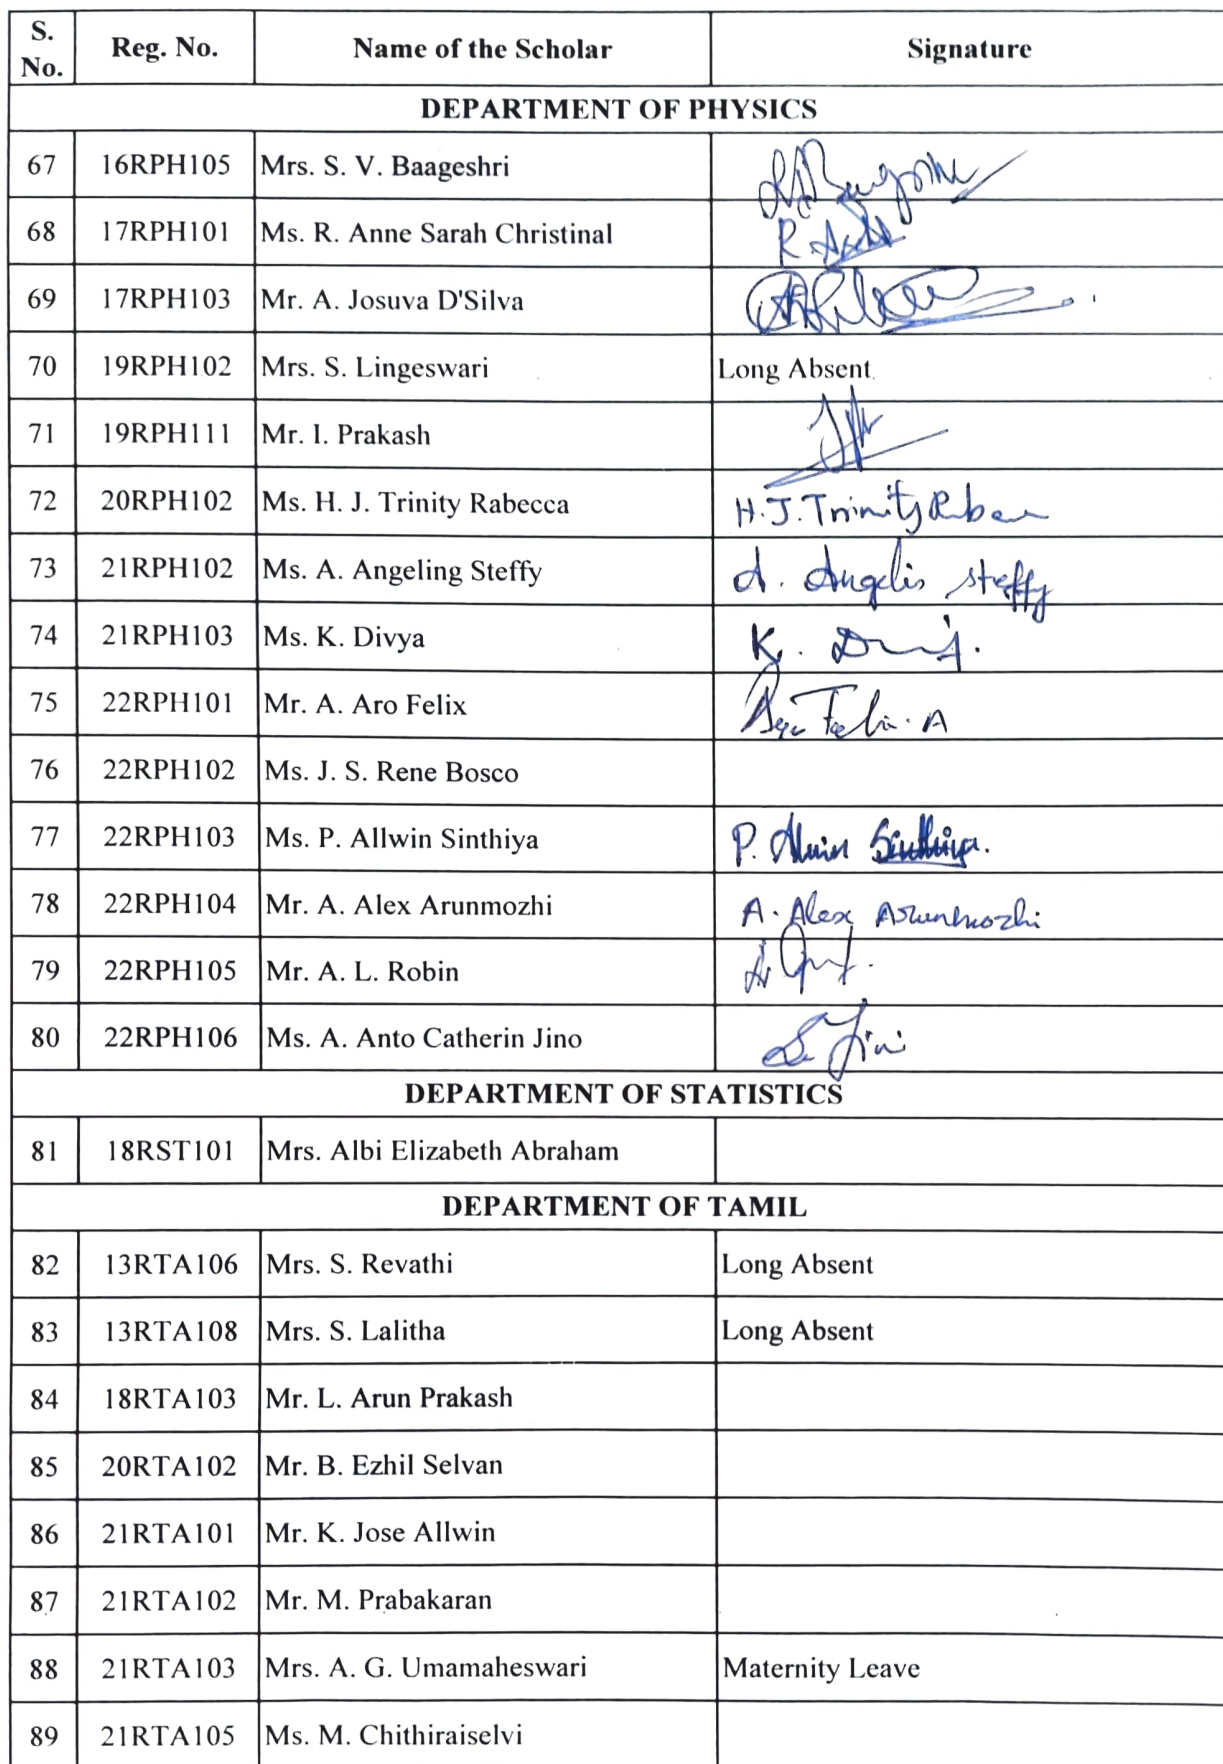 S. No. Reg. No. Name of the Scholar Signature
DEPARTMENT OF PHYSICS
67 16RPH105 Mrs. S. V. Baageshri
68 17RPH101 Ms. R. Anne Sarah Christinal R.
69 17RPH103 Mr. A. Josuva D'Silva
70 19RPH102 Mrs. S. Lingeswari Long Absent
71 19RPH111 Mr. I. Prakash
72 20RPH102 Ms. H. J. Trinity Rabecca H. J. Trinity
73 21RPH102 Ms. A. Angeling Steffy A. Steffy
74 21RPH103 Ms. K. Divya K.
75 22RPH101 Mr. A. Aro Felix A
76 22RPH102 Ms. J. S. Rene Bosco
77 22RPH103 Ms. P. Allwin Sinthiya P. Sinthiya.
78 22RPH104 Mr. A. Alex Arunmozhi A. Alex Arunmozhi
79 22RPH105 Mr. A. L. Robin
80 22RPH106 Ms. A. Anto Catherin Jino
DEPARTMENT OF STATISTICS
81 18RST101 Mrs. Albi Elizabeth Abraham
DEPARTMENT OF TAMIL
82 13RTA106 Mrs. S. Revathi Long Absent
83 13RTA108 Mrs. S. Lalitha Long Absent
84 18RTA103 Mr. L. Arun Prakash
85 20RTA102 Mr. B. Ezhil Selvan
86 21RTA101 Mr. K. Jose Allwin
87 21RTA102 Mr. M. Prabakaran
88 21RTA103 Mrs. A. G. Umamaheswari Maternity Leave
89 21RTA105 Ms. M. Chithiraiselvi